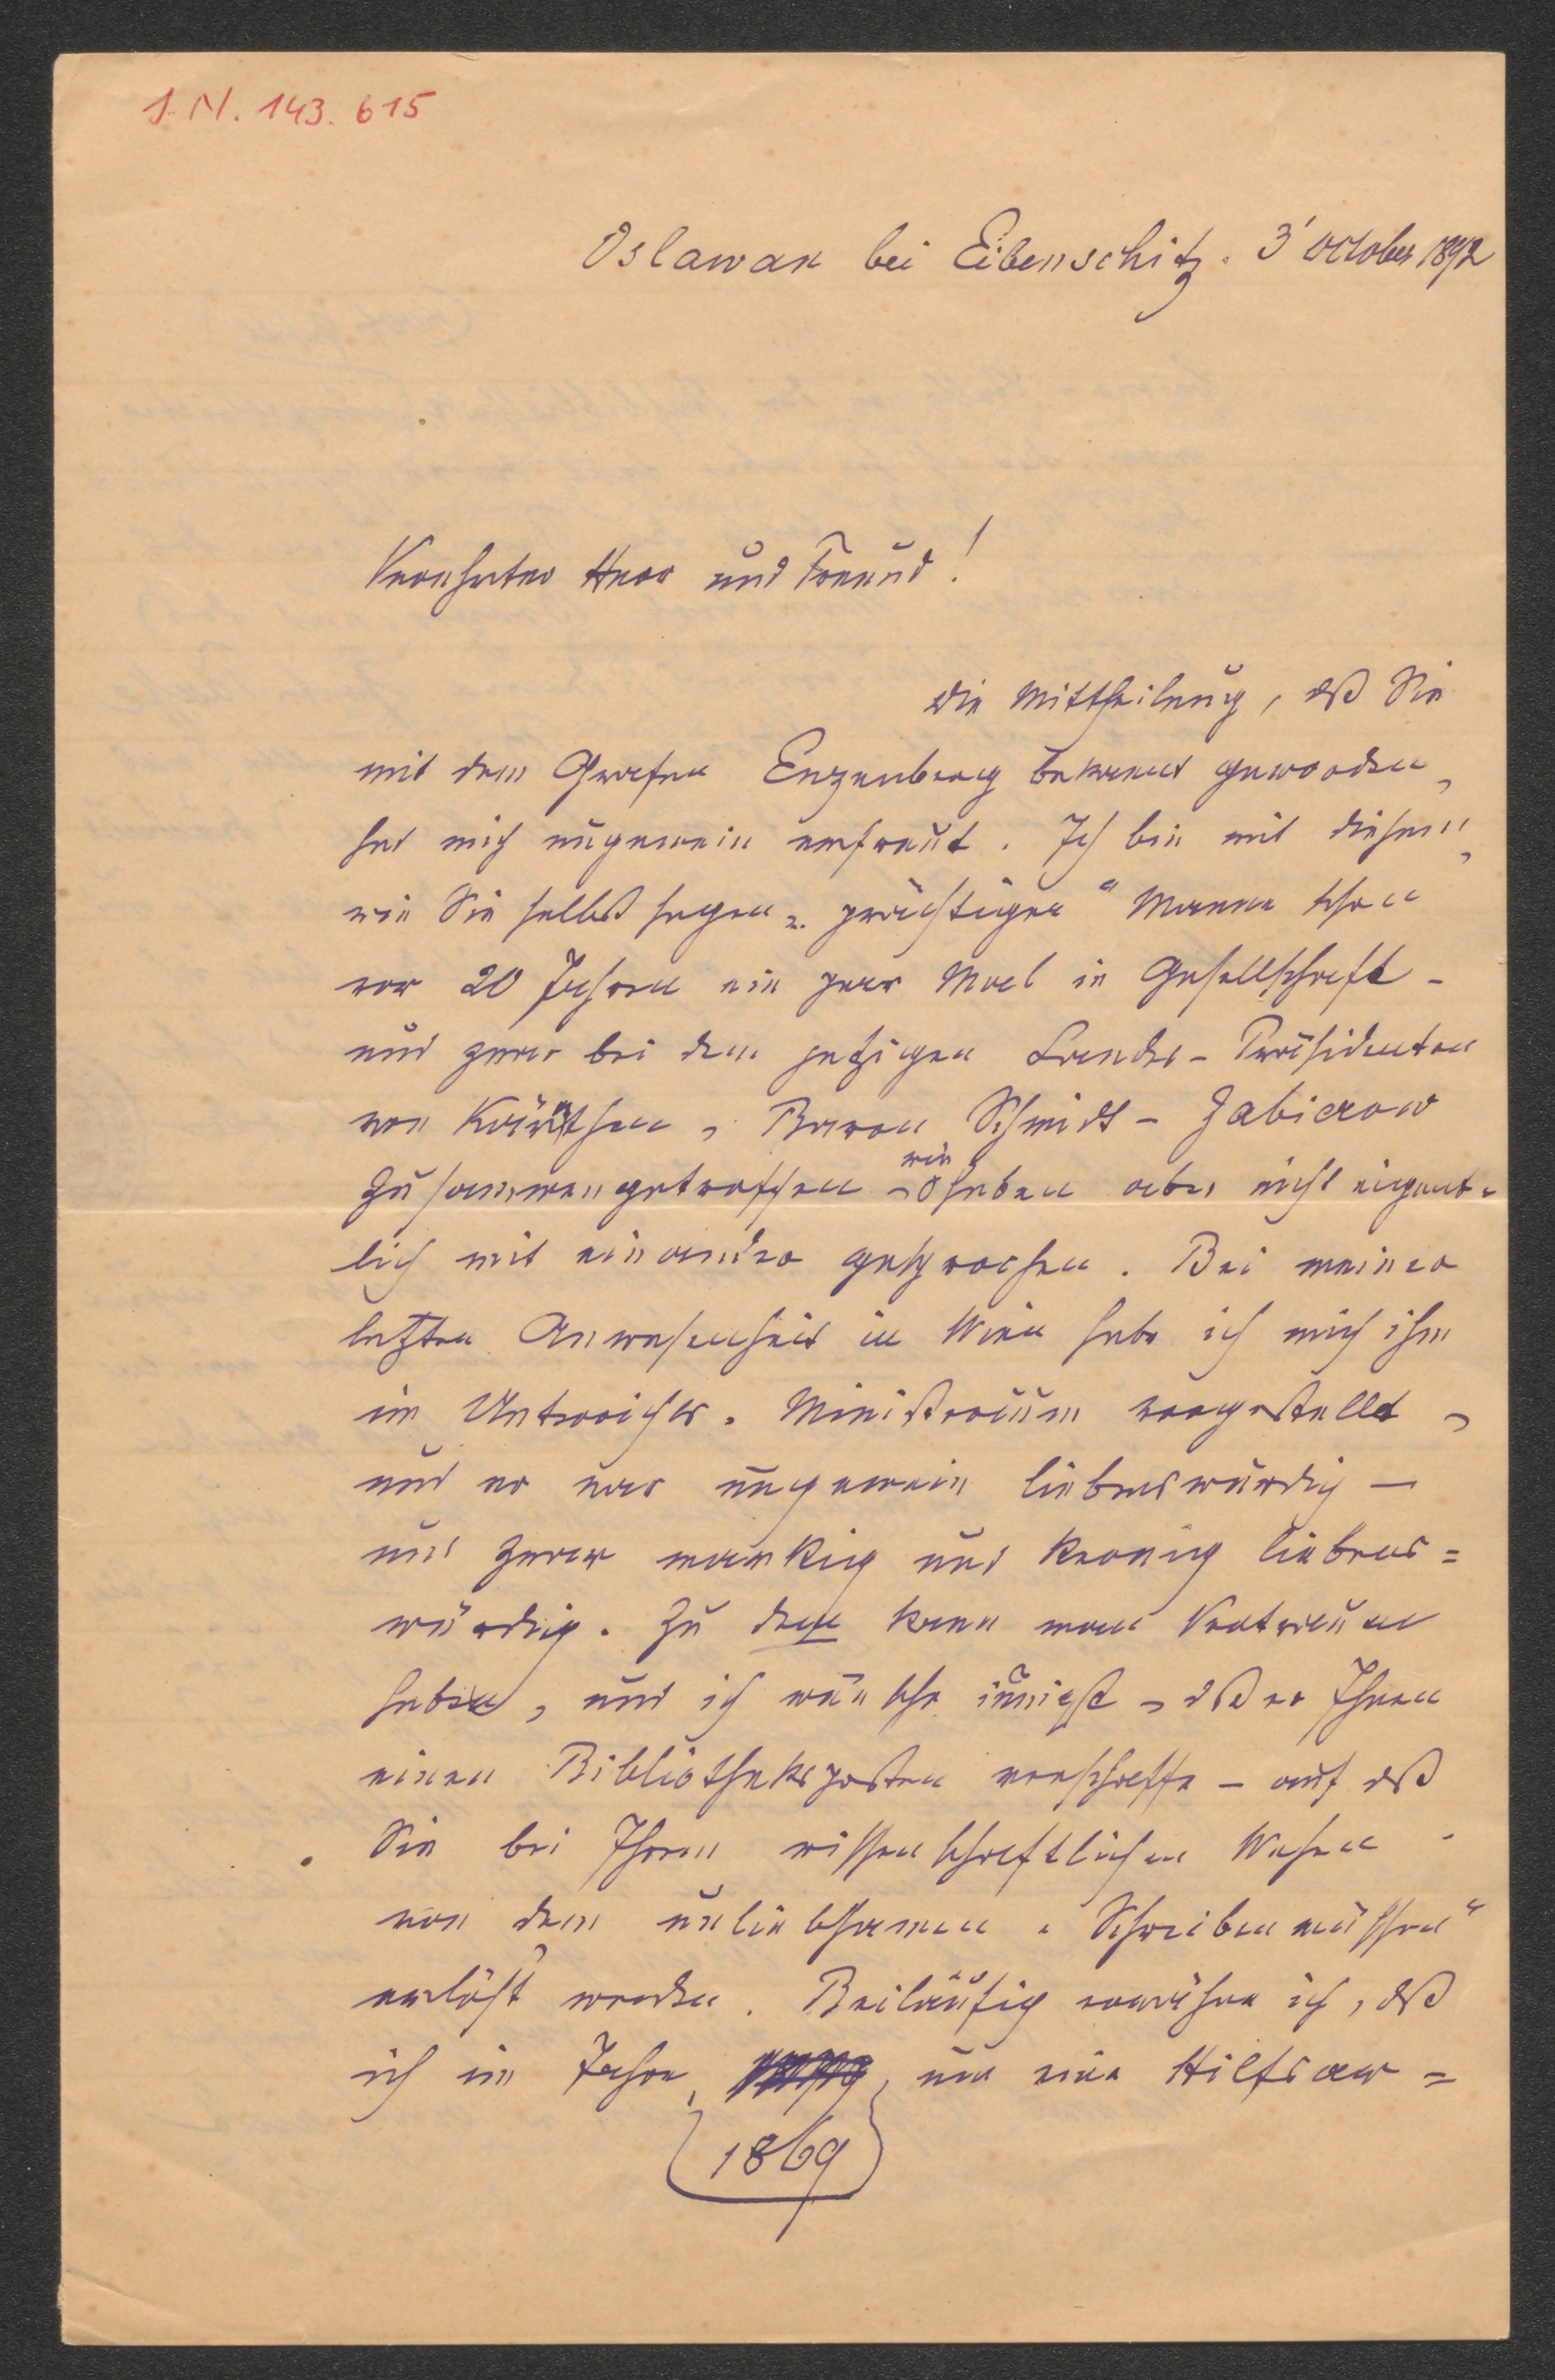 J. N. 143.615
Oslawan bei Eibenschitz. 3' October 1892
Verehrter Herr und Freund!
Die Mittheilung, daß Sie
mit dem Grafen Enzenberg bekannt geworden,
hat mich ungemein erfreut. Ich bin mit diesem,
wie Sie selbst sagen „prächtigen“ Manne schon
vor 20 Jahren ein paar Mal in Gesellschaft –
und zwar bei dem jetzigen Landes-Präsidenten
von Kärnthen, Baron Schmidt-Zabierow
zusammengetroffen – wir haben aber nicht eigent-
lich mit einander gesprochen. Bei meiner
letzten Anwesenheit in Wien habe ich mich ihm
im Unterrichts-Ministerium vorgestellt,
und er war ungemein liebenswürdig –
und zwar markig und kernig liebens=
würdig. Zu dem kann man Vertrauen
haben, und ich wünsche innigst, daß er Ihnen
einen Bibliotheksposten verschaffe – auf daß
Sie bei Ihrem wissenschaftlichen Wesen
von dem unliebsamen „Schreibenmüssen“
erlöst werden. Beiläufig erwähne ich, daß
ich im Jahre um eine Hilfsar=
1869